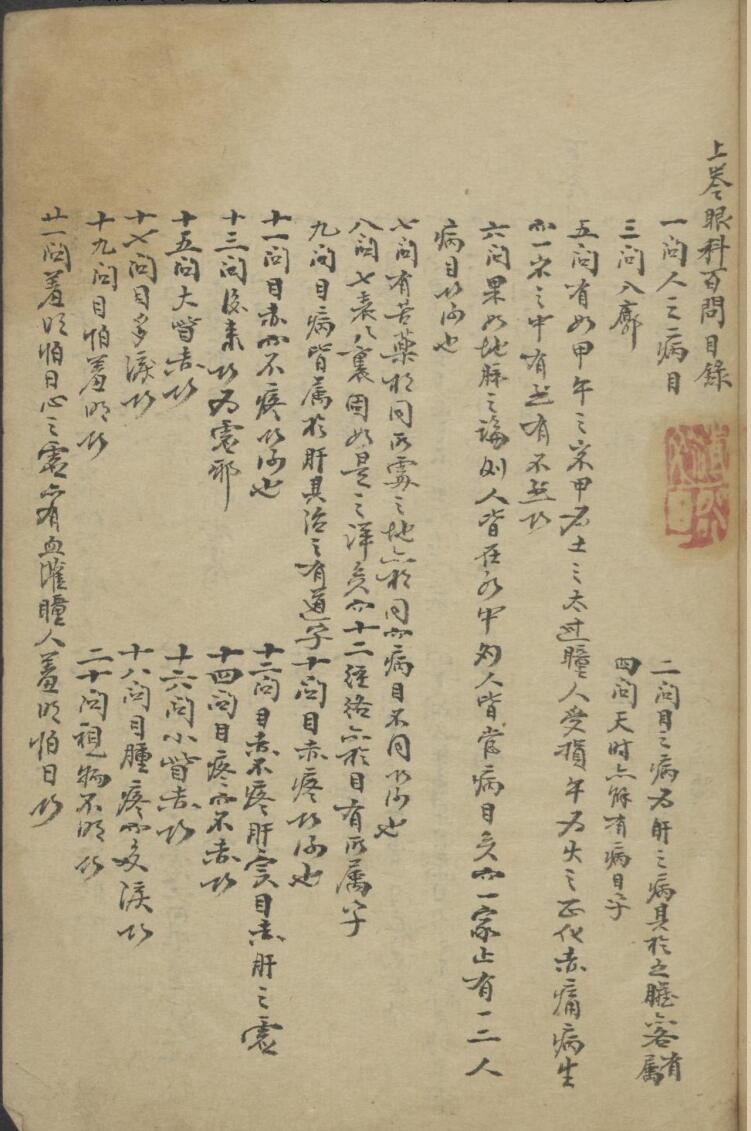 上卷眼科百問目錄
一問人之病目
二問目之病為肝之病其於五臟亦各有屬
三問八廓
四問天时亦能有病目乎
五問有如甲午之家甲為土之太过瞳人受損午為火之正化赤痛病生
而一家之中有然有不然於
六問果如地脉之論則人皆在水中則人皆當病目矣而一家止有一二人
病目以何也
七問有苦藥於同所處之地亦於同而病目不同以何也
八問七表八裏固如是之详矣而十二经络亦於目有所属乎
九問目病皆属於肝其治之有道乎
十問目赤疼以何也
十一問目赤而不疼以何也
十二問目赤不疼肝实目赤肝之虛
十三問後来以為虛邪
十四問目疼而不赤以
十五問大眥赤以
十六問小眥赤以
十七問目多淚以
十八問目腫疼而多淚以
十九問目怕羞明以
二十問視物不明以
廿一問羞明怕日心之虛亦有血灌瞳人羞明怕日以